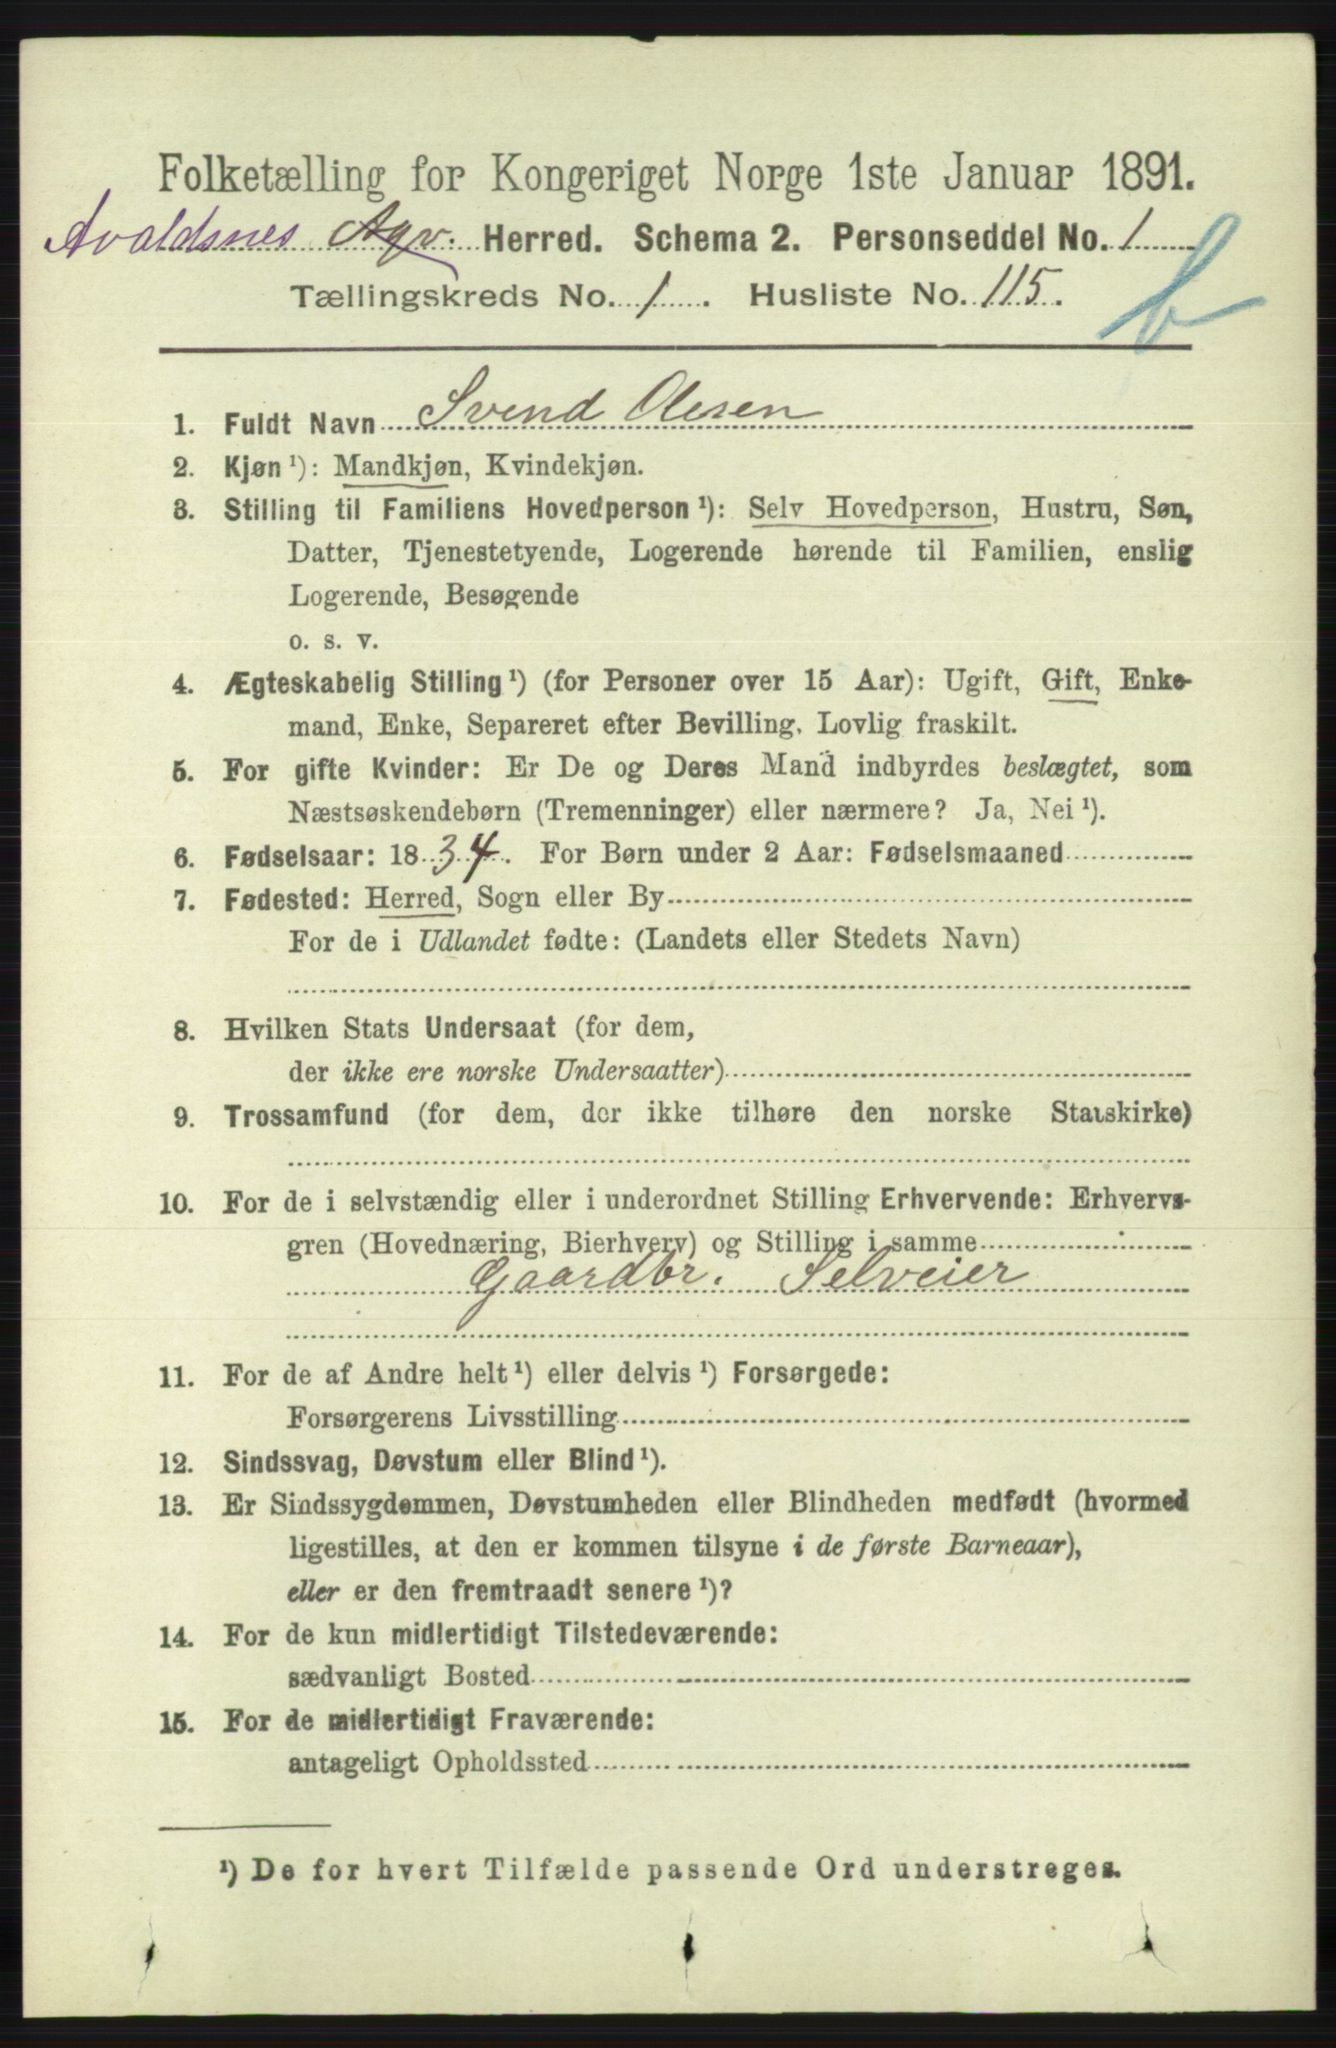 Folketælling for Kongeriget Norge 1ste Januar 1891.
Avaldsnes Agv. Herred. Schema 2. Personseddel No. 1
Tællingskreds No. 1. Husliste No. 115.
b
1. Fuldt Navn Svend Olesen
2. Kjøn¹): Mandkjøn, Kvindekjøn.
3. Stilling til Familiens Hovedperson¹): Selv Hovedperson, Hustru, Søn,
Datter, Tjenestetyende, Logerende hørende til Familien, enslig
Logerende, Besøgende
o. s. v.
4. Ægteskabelig Stilling¹) (for Personer over 15 Aar): Ugift, Gift, Enke-
mand, Enke, Separeret efter Bevilling, Lovlig fraskilt.
5. For gifte Kvinder: Er De og Deres Mand indbyrdes beslægtet, som
Næstsøskendebørn (Tremenninger) eller nærmere? Ja, Nei¹).
6. Fødselsaar: 1834. For Børn under 2 Aar: Fødselsmaaned
7. Fødested: Herred, Sogn eller By
For de i Udlandet fødte: (Landets eller Stedets Navn)
8. Hvilken Stats Undersaat (for dem,
der ikke ere norske Undersaatter)
9. Trossamfund (for dem, der ikke tilhøre den norske Statskirke)
10. For de i selvstændig eller i underordnet Stilling Erhvervende: Erhvervs-
gren (Hovednæring, Bierhverv) og Stilling i samme
Gaardbr. Selveier
11. For de af Andre helt¹) eller delvis¹) Forsørgede:
Forsørgerens Livsstilling
12. Sindssvag, Døvstum eller Blind¹).
13. Er Sindssygdommen, Døvstumheden eller Blindheden medfødt (hvormed
ligestilles, at den er kommen tilsyne i de første Barneaar),
eller er den fremtraadt senere¹)?
14. For de kun midlertidigt Tilstedeværende:
sædvanligt Bosted
15. For de midlertidigt Fraværende:
antageligt Opholdssted
¹) De for hvert Tilfælde passende Ord understreges.